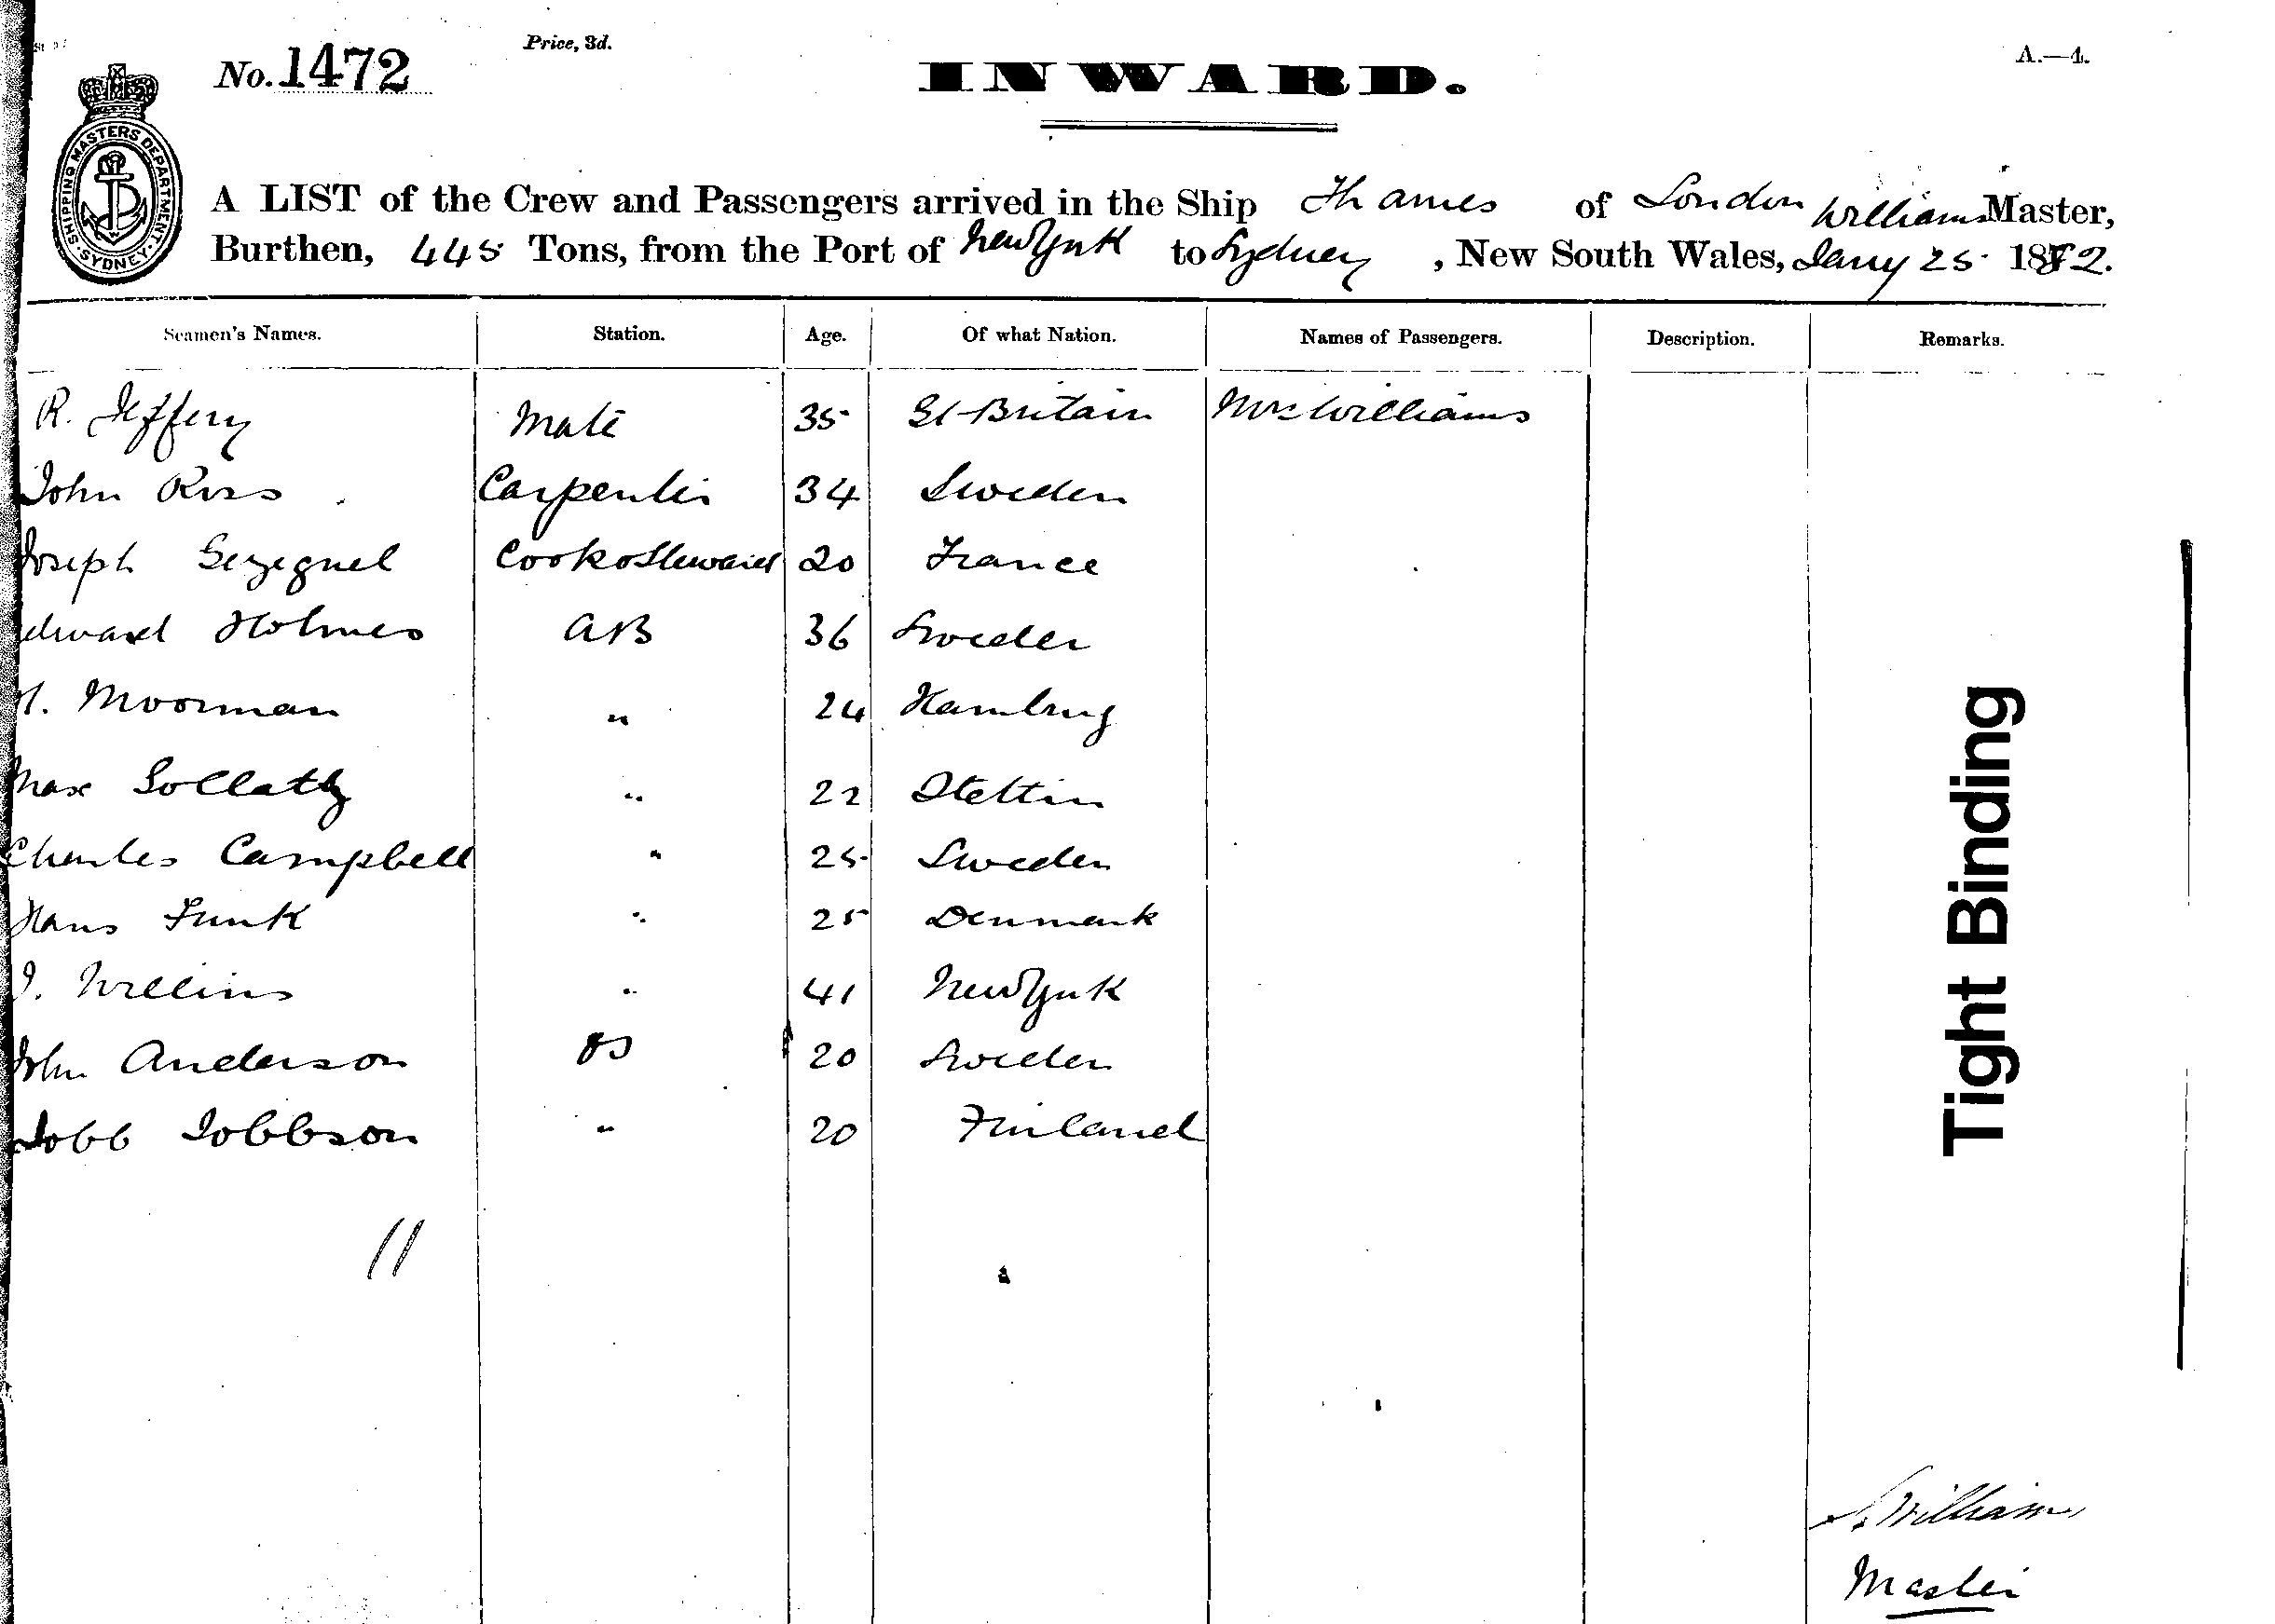 No. 1472
Price, 3d.
INWARD.
A.—4.
SHIPPING MASTERS DEPARTMENT · SYDNEY ·
A LIST of the Crew and Passengers arrived in the Ship Thames of London Williams Master,
Burthen, 445 Tons, from the Port of New York to Sydney, New South Wales, Jany 25 1882.
Seamen's Names. Station. Age. Of what Nation. Names of Passengers. Description. Remarks.
R. Jeffery Mate 35 Gt Britain Mrs Williams
John Ross Carpenter 34 Sweden
Joseph Cook & Steward 20 France
Edward Holmes AB 36 Sweden
H. Moorman " 24 Hamburg
Max " 22 Stettin
Charles Campbell " 25 Sweden
Hans Funk " 25 Denmark
J. " 41 New York
John Anderson OS 20 Sweden
Jobb Jobbson " 20 Finland
11
Tight Binding
Williams
Master